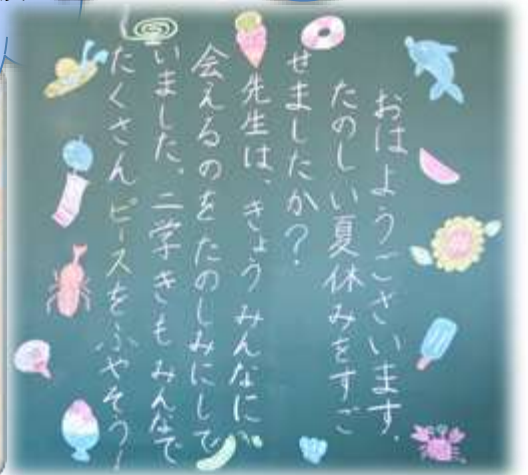 おはようございます。
たのしい夏休みをすご
せましたか？
先生は、きょうみんなに
会えるのをたのしみにして
いました。二学きもみんなで
たくさんピースをふやそう！